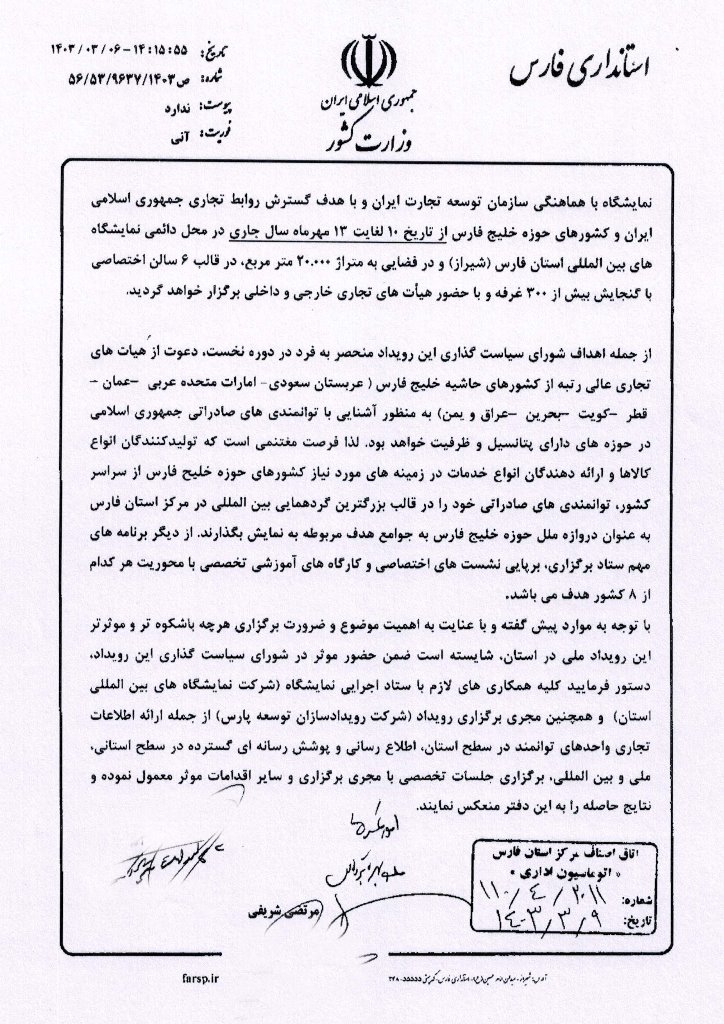 استانداری فارس
جمهوری اسلامی ایران
وزارت کشور
تاریخ: ۱۴۰۳/۰۳/۰۶-۱۴:۱۵:۵۵
شماره: ص۵۶/۵۳/۹۶۳۷/۱۴۰۳
پیوست: ندارد
فوریت: آنی
نمایشگاه با هماهنگی سازمان توسعه تجارت ایران و با هدف گسترش روابط تجاری جمهوری اسلامی
ایران و کشورهای حوزه خلیج فارس از تاریخ ۱۰ لغایت ۱۳ مهرماه سال جاری در محل دائمی نمایشگاه
های بین المللی استان فارس (شیراز) و در فضایی به متراژ ۲۰،۰۰۰ متر مربع، در قالب ۶ سالن اختصاصی
با گنجایش بیش از ۳۰۰ غرفه و با حضور هیأت های تجاری خارجی و داخلی برگزار خواهد گردید.
از جمله اهداف شورای سیاست گذاری این رویداد منحصر به فرد در دوره نخست، دعوت از هیات های
تجاری عالی رتبه از کشورهای حاشیه خلیج فارس ( عربستان سعودی- امارات متحده عربی –عمان –
قطر –کویت –بحرین –عراق و یمن) به منظور آشنایی با توانمندی های صادراتی جمهوری اسلامی
در حوزه های دارای پتانسیل و ظرفیت خواهد بود. لذا فرصت مغتنمی است که تولیدکنندگان انواع
کالاها و ارائه دهندگان انواع خدمات در زمینه های مورد نیاز کشورهای حوزه خلیج فارس از سراسر
کشور، توانمندی های صادراتی خود را در قالب بزرگترین گردهمایی بین المللی در مرکز استان فارس
به عنوان دروازه ملل حوزه خلیج فارس به جوامع هدف مربوطه به نمایش بگذارند. از دیگر برنامه های
مهم ستاد برگزاری، برپایی نشست های اختصاصی و کارگاه های آموزشی تخصصی با محوریت هر کدام
از ۸ کشور هدف می باشد.
با توجه به موارد پیش گفته و با عنایت به اهمیت موضوع و ضرورت برگزاری هرچه باشکوه تر و موثرتر
این رویداد ملی در استان، شایسته است ضمن حضور موثر در شورای سیاست گذاری این رویداد،
دستور فرمایید کلیه همکاری های لازم با ستاد اجرایی نمایشگاه (شرکت نمایشگاه های بین المللی
استان) و همچنین مجری برگزاری رویداد (شرکت رویدادسازان توسعه پارس) از جمله ارائه اطلاعات
تجاری واحدهای توانمند در سطح استان، اطلاع رسانی و پوشش رسانه ای گسترده در سطح استانی،
ملی و بین المللی، برگزاری جلسات تخصصی با مجری برگزاری و سایر اقدامات موثر معمول نموده و
نتایج حاصله را به این دفتر منعکس نمایند.
مرتضی شریفی
اتاق اصناف مرکز استان فارس
« اتوماسیون اداری »
شماره: ۱۱۰/۴/۲۰۱۱
تاریخ: ۱۴۰۳/۳/۹
farsp.ir